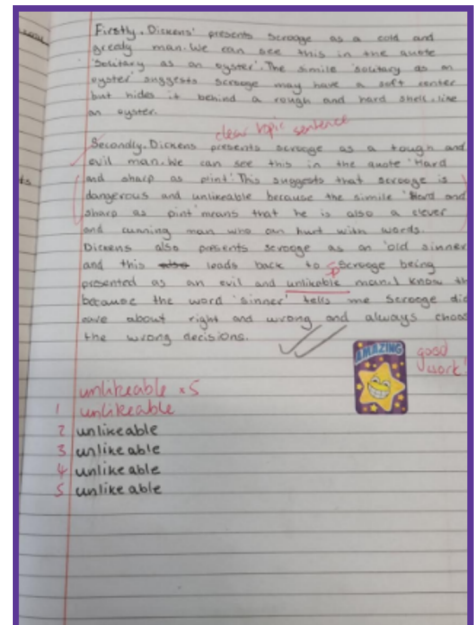 Firstly. Dickens' presents Scrooge as a cold and
greedy man. We can see this in the quote
'Solitary as an oyster'. The simile 'solitary as an
oyster' suggests scrooge may have a soft center
but hides it behind a rough and hard shell. like
an oyster.
clear topic sentence
Secondly. Dickens presents scrooge as a tough and
evil man. We can see this in the quote 'Hard
and sharp as print'. This suggests that scrooge is
dangerous and unlikeable because the simile 'Hard and
sharp as pint means that he is also a clever
and cunning man who can hurt with words.
Dickens also presents scrooge as an 'old sinner
and this leads back to Scrooge being
presented as an evil and unlikable man. I know
because the word 'sinner' tells me Scrooge
care about right and wrong and always
the wrong decisions.
AMAZING
good
work!
unlikeable x5
1 unlikeable
2 unlikeable
3 unlikeable
4 unlikeable
5 unlikeable